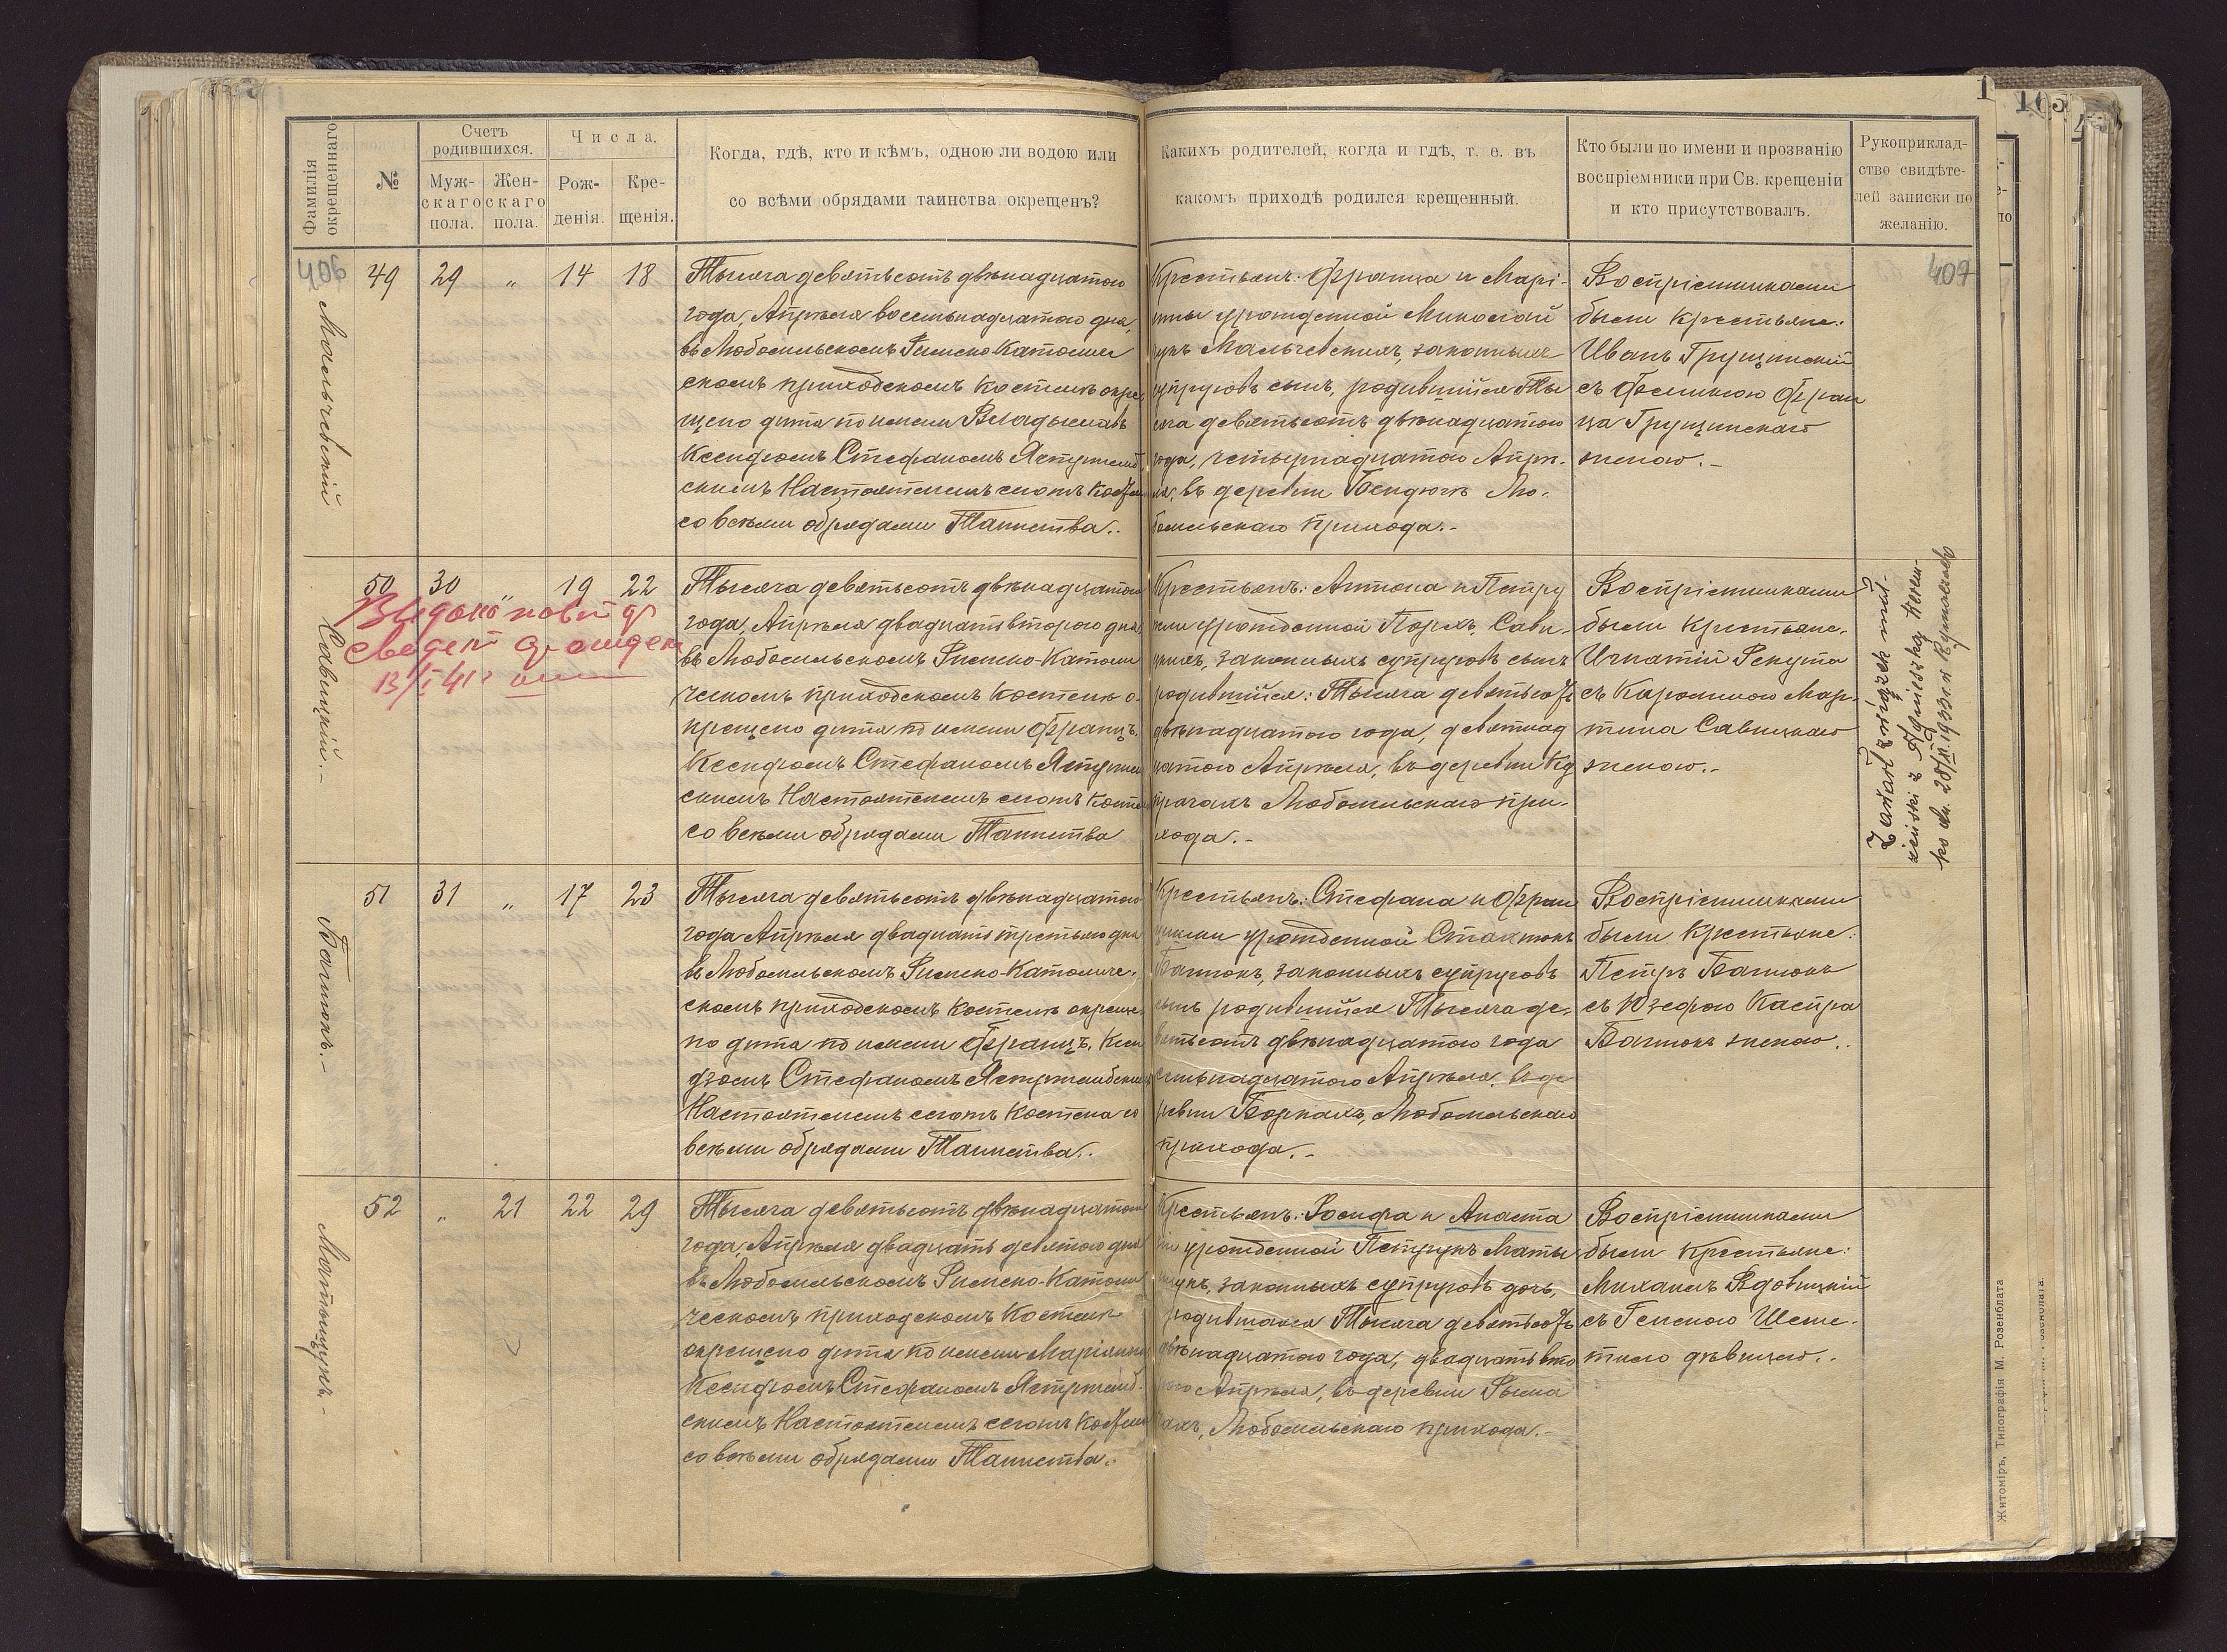 Фамилія окрещеннаго
№
Счетъ родившихся.
Муж-скаго пола.
Жен-скаго пола.
Числа.
Рож-денія.
Кре-щенія.
Когда, гдѣ, кто и кѣмъ, одною ли водою или
со всѣми обрядами таинства окрещенъ?
Какихъ родителей, когда и гдѣ, т. е. въ
какомъ приходѣ родился крещенный.
Кто были по имени и прозванію
воспріемники при Св. крещеніи
и кто присутствовалъ.
Рукоприклад-
ство свидѣте-
лей записки по
желанію.
406
407
Мальчевскій
49 29 „ 14 18
Тысяча девятьсотъ двѣнадцатого
года, Апрѣля восемьнадцатого дня,
въ Любомльскомъ Римско Католиче
скомъ приходскомъ Костелѣ окре
щено дитя по имени Владыславъ
Ксендзомъ Стефаномъ Ястржемб
скимъ Настоятелемъ сего
со всѣми обрядами Таинства.
Крестьянъ: Франца и Марі-
анны урожденной Миколай
чукъ Мальчевскихъ, законныхъ
супруговъ сынъ, родившійся Ты
сяча девятьсотъ двѣнадцатого
года, четырнадцатого Апрѣ-
ля, въ деревни Бендюгѣ Лю-
бомльскаго прихода.-
Воспріемниками
были Крестьяне:
Иванъ Грущинскій
съ Фран
ца Грущинскаго
женою.-
Савицкій.-
50 30 „ 19 22
Тысяча девятьсотъ двѣнадцатого
года, Апрѣля двадцать второго дня,
въ Любомльскомъ Римско-Католи
ческомъ приходскомъ Костелѣ о-
крещено дитя по имени Францъ.
Ксендзомъ Стефаномъ Ястржемб
скимъ Настоятелемъ сего
со всѣми обрядами Таинства
Крестьянъ: Антона и Петру
нели урожденной Савиц-
кихъ, законныхъ супруговъ сынъ
родившійся: Тысяча девятьсотъ
двѣнадцатого года, девятнад
цатого Апрѣля, въ деревни
Любомльскаго при-
хода.-
Воспріемниками
были Крестьяне.
Игнатій Рекута
съ Каролиною Мар-
тина Савицкаго
женою.-
Zawarł związek mał-
żeński z Agnieszką
dn. 28/II 1933 r. w
Багнюкъ.-
51 31 „ 17 23
Тысяча девятьсотъ двѣнадцатого
года Апрѣля двадцать третьяго дня
въ Любомльскомъ Римско-Католиче-
скомъ приходскомъ Костелѣ окреще-
но дитя по имени Францъ. Ксен
дзомъ Стефаномъ Ястржембскимъ
Настоятелемъ сего Костела со
всѣми обрядами Таинства.
Крестьянъ: Стефана и Фран
цишки урожденной
Багнюкъ, законныхъ супруговъ
сынъ родившійся Тысяча де-
вятьсотъ двѣнадцатого года
семьнадцатого Апрѣля, въ де
ревни Боркахъ, Любомльскаго
прихода.-
Воспріемниками
были Крестьяне:
Петръ Багнюкъ
съ Юзефою Каспра
Багнюкъ женою.
Матыщукъ.-
52 „ 21 22 29
Тысяча девятьсотъ двѣнадцатого
года, Апрѣля двадцать девятого дня
въ Любомльскомъ Римско-Католи
ческомъ приходскомъ Костелѣ
окрещено дитя по имени Маріанна
Ксендзомъ Стефаномъ Ястржемб-
скимъ Настоятелемъ сего
со всѣми обрядами Таинства.
Крестьянъ: Іосифа и Анаста
зіи урожденной Петрукъ Маты
щукъ, законныхъ супруговъ дочь,
родившаяся Тысяча девятьсотъ
двѣнадцатого года, двадцать вто
рого Апрѣля, въ деревни Рыма
чахъ, Любомльскаго прихода.-
Воспріемниками
были Крестьяне:
Михаилъ Вдовицкій
съ Геленою Шеме-
тило дѣвицею..
Житоміръ, Типографія М. Розенблата